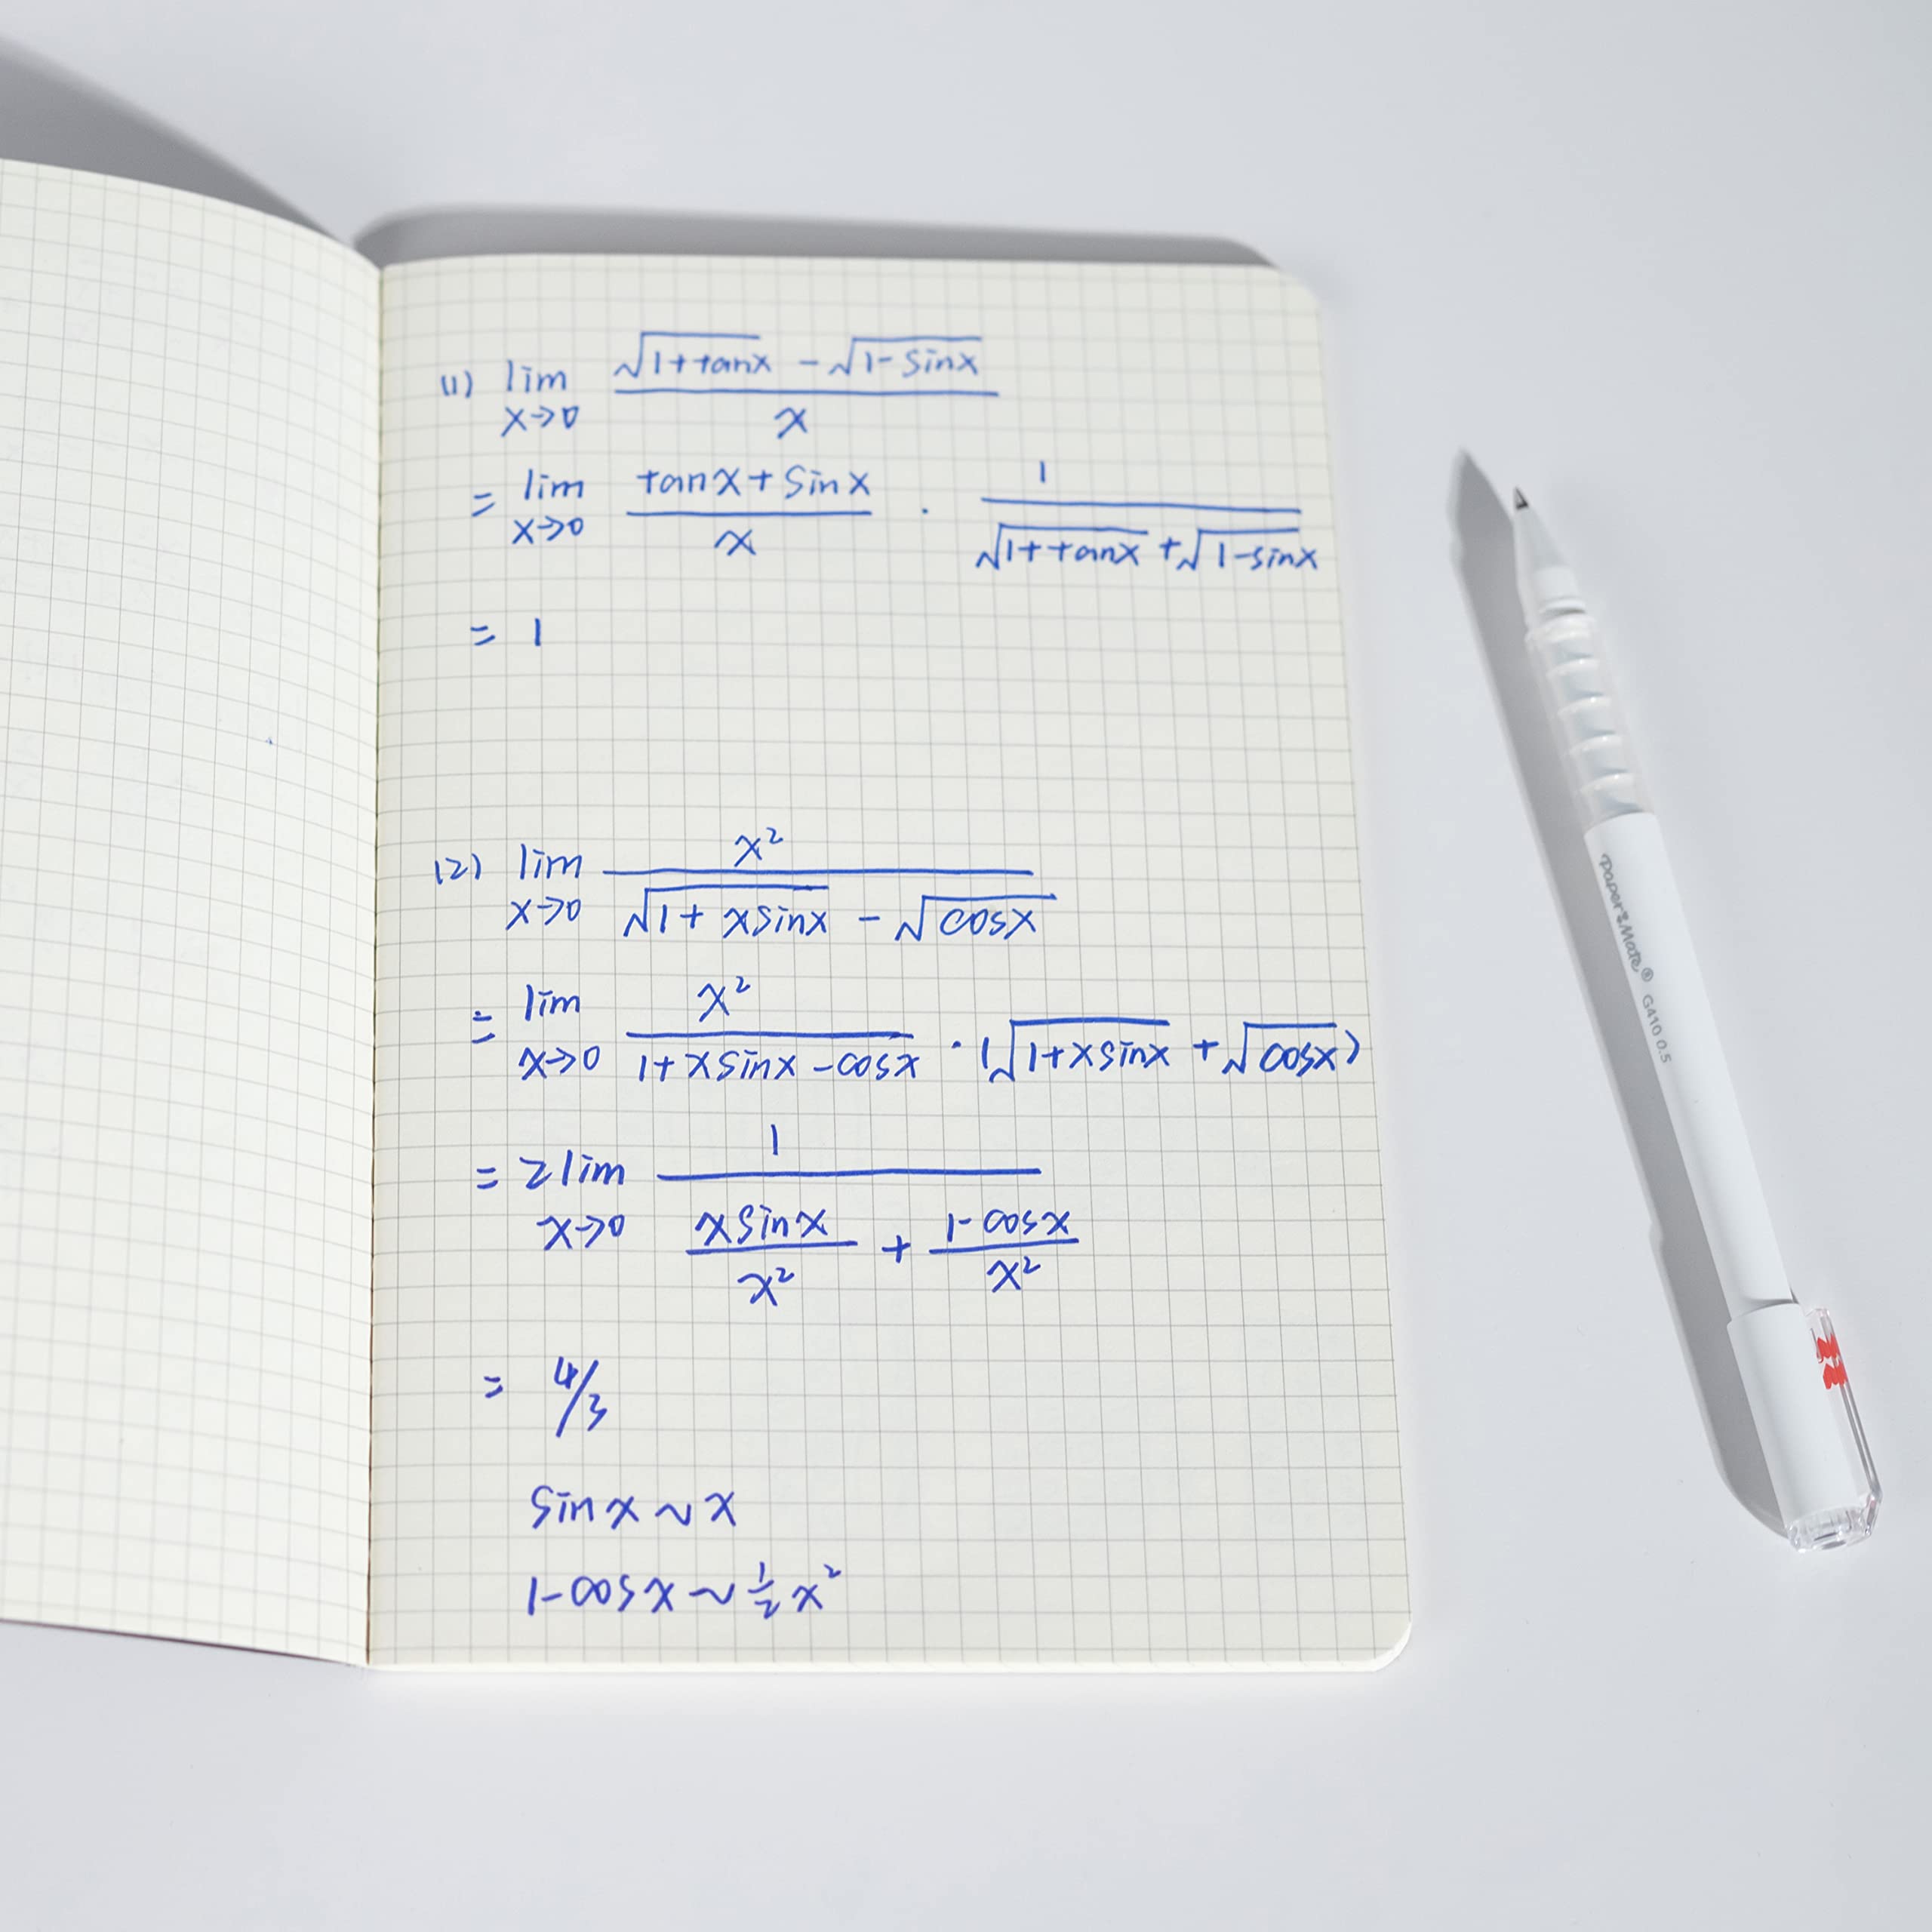 (1) lim x→0 (√(1+tanx) - √(1-sinx)) / x
= lim x→0 (tanx + sinx) / x · 1 / (√(1+tanx) + √(1-sinx))
= 1
(2) lim x→0 x² / (√(1+xsinx) - √(cosx))
= lim x→0 x² / (1+xsinx-cosx) · (√(1+xsinx) + √(cosx))
= 2 lim x→0 1 / (xsinx / x² + (1-cosx) / x²)
= 4/3
sinx ~ x
1-cosx ~ ½x²
Paper:Mate® G410 0.5